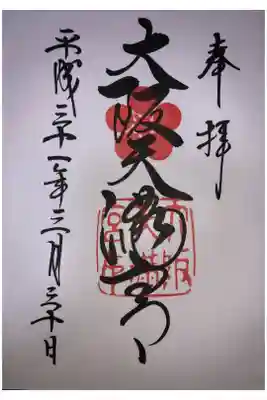 奉拝
大阪天満宮
平成三十一年三月三十日